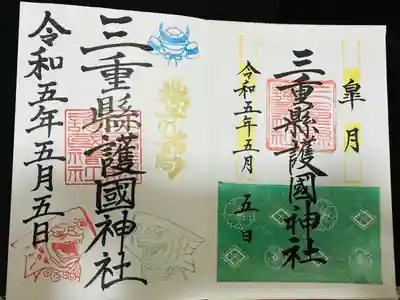 皐月
三重縣護國神社
令和五年五月
五日
三重縣護國神社
令和五年五月五日